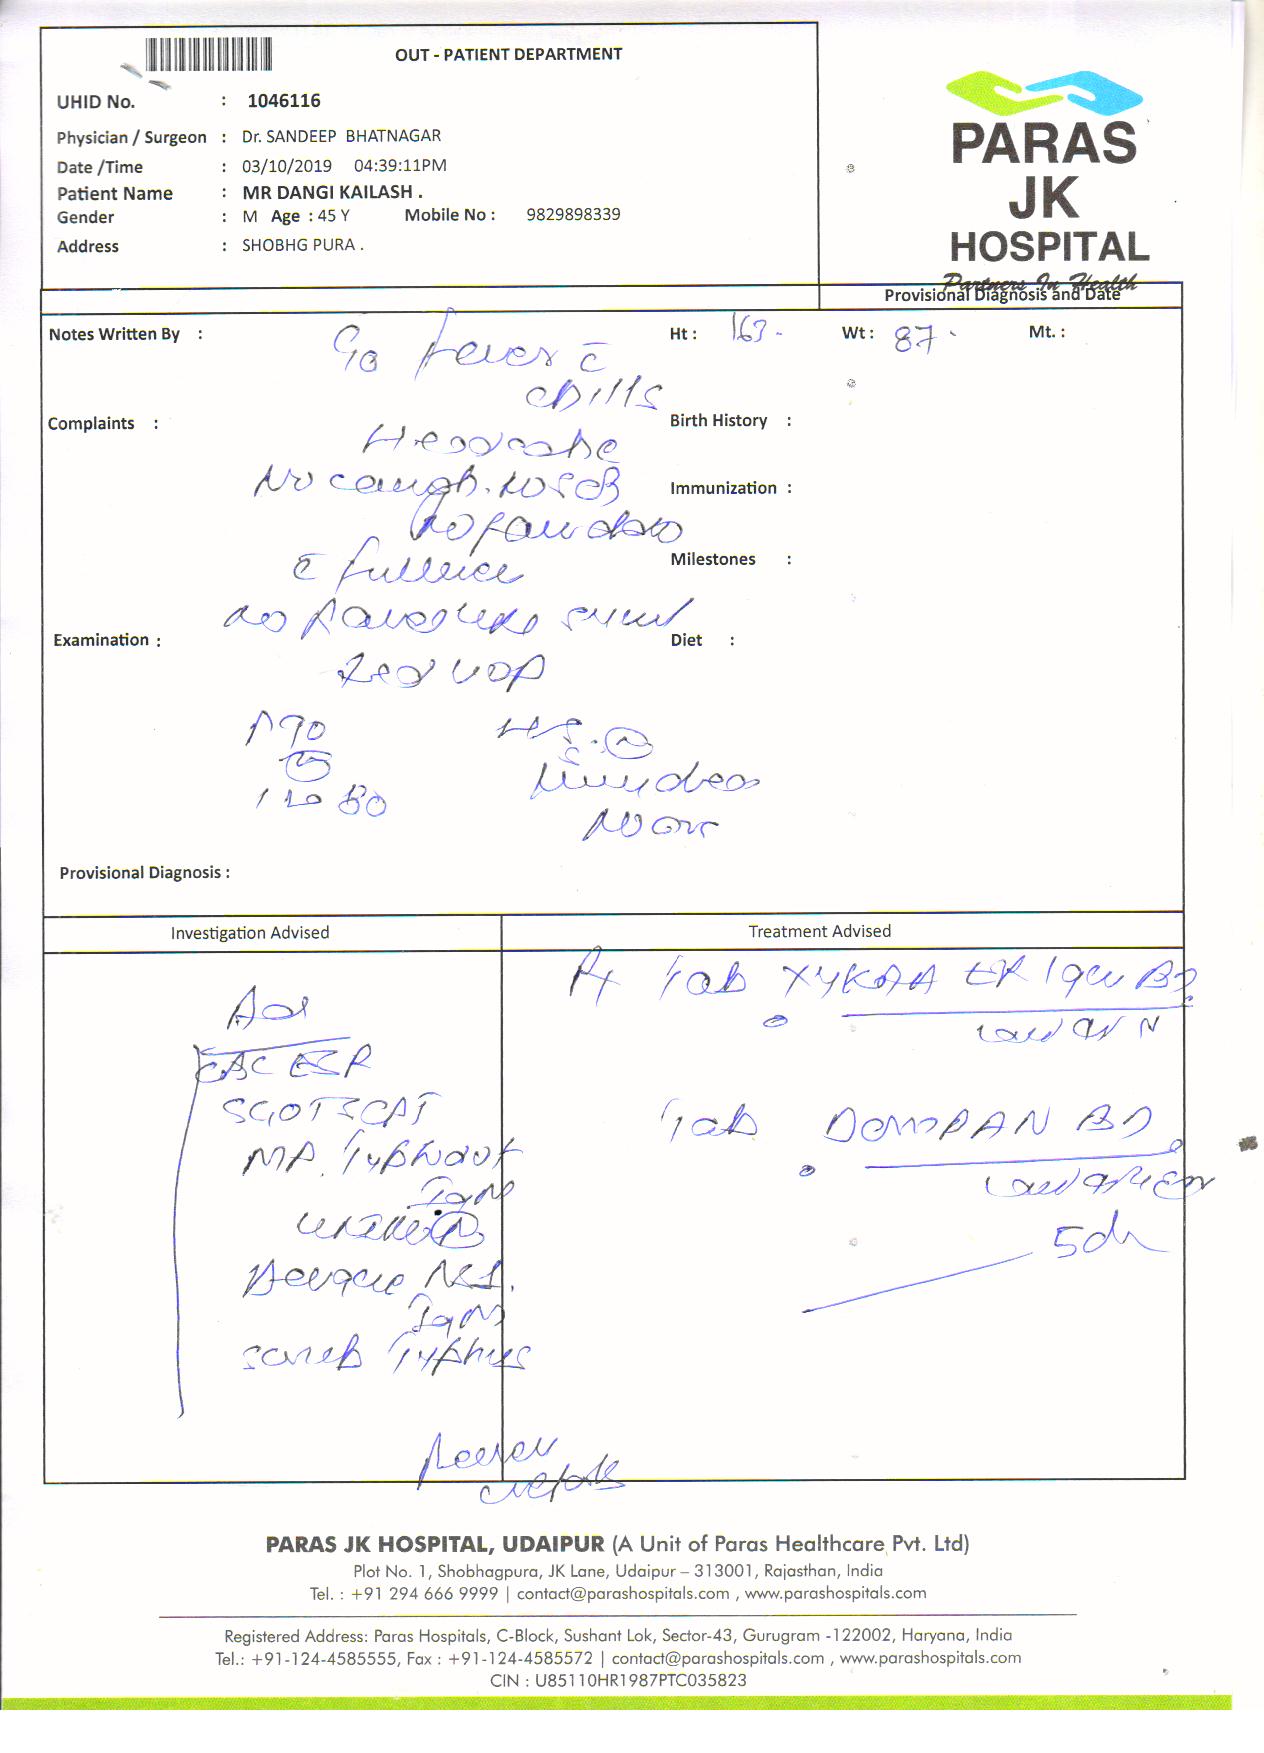 OUT - PATIENT DEPARTMENT
UHID No. : 1046116
Physician / Surgeon : Dr. SANDEEP BHATNAGAR
Date /Time : 03/10/2019 04:39:11PM
Patient Name : MR DANGI KAILASH .
Gender : M Age : 45 Y Mobile No : 9829898339
Address : SHOBHG PURA .
PARAS
JK
HOSPITAL
Partners In Health
Provisional Diagnosis and Date
Notes Written By :
Ht : 163 - Wt : 87 - Mt. :
fever c̄
chills
Complaints :
Birth History :
Headache
No cough. No SOB
Immunization :
Milestones :
c̄
Examination :
Diet :
P 90
120 80
Provisional Diagnosis :
Investigation Advised
Treatment Advised
Adv
CBC ESR
SGOT SGPT
MP. Typhidot
IgM
Urine
Dengue NS1.
IgM
Scrub Typhus
Review
Rx Tab XYKAA ER BD
Tab DOMPAN BD
5d
PARAS JK HOSPITAL, UDAIPUR (A Unit of Paras Healthcare Pvt. Ltd)
Plot No. 1, Shobhagpura, JK Lane, Udaipur – 313001, Rajasthan, India
Tel. : +91 294 666 9999 | contact@parashospitals.com , www.parashospitals.com
Registered Address: Paras Hospitals, C-Block, Sushant Lok, Sector-43, Gurugram -122002, Haryana, India
Tel.: +91-124-4585555, Fax : +91-124-4585572 | contact@parashospitals.com , www.parashospitals.com
CIN : U85110HR1987PTC035823